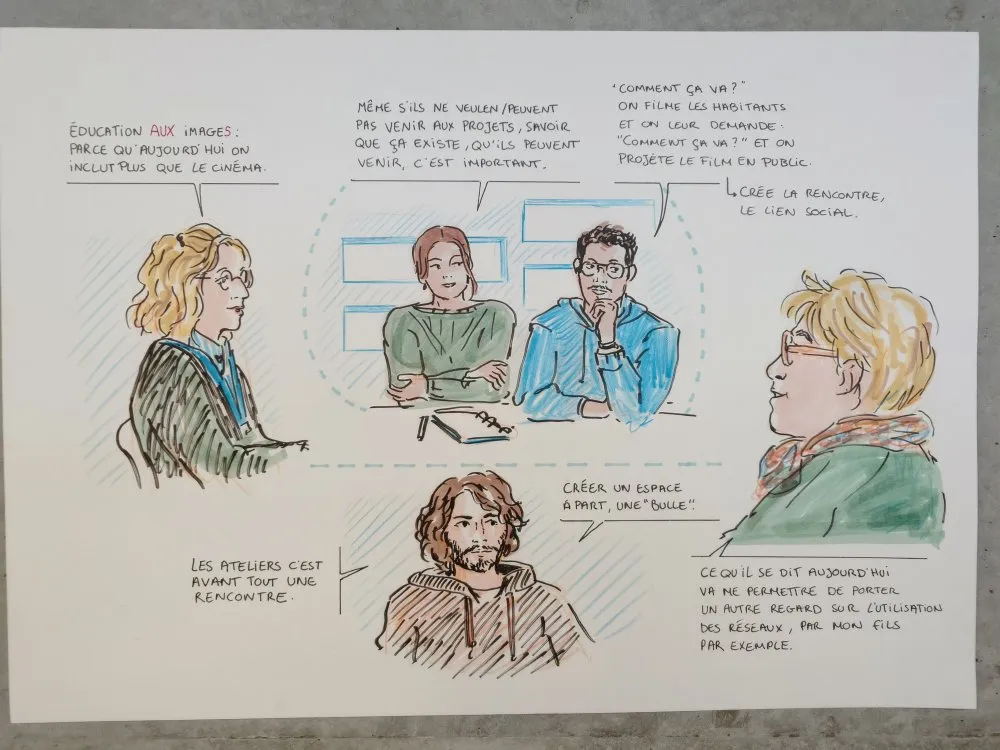 ÉDUCATION AUX IMAGES :
PARCE QU'AUJOURD'HUI ON
INCLUT PLUS QUE LE CINÉMA.
MÊME S'ILS NE VEULEN/PEUVENT
PAS VENIR AUX PROJETS, SAVOIR
QUE ÇA EXISTE, QU'ILS PEUVENT
VENIR, C'EST IMPORTANT.
"COMMENT ÇA VA ?"
ON FILME LES HABITANTS
ET ON LEUR DEMANDE :
"COMMENT ÇA VA ?" ET ON
PROJÈTE LE FILM EN PUBLIC.
CRÉE LA RENCONTRE,
LE LIEN SOCIAL.
CRÉER UN ESPACE
À PART, UNE "BULLE".
LES ATELIERS C'EST
AVANT TOUT UNE
RENCONTRE.
CE QU'IL SE DIT AUJOURD'HUI
VA ME PERMETTRE DE PORTER
UN AUTRE REGARD SUR L'UTILISATION
DES RÉSEAUX, PAR MON FILS
PAR EXEMPLE.